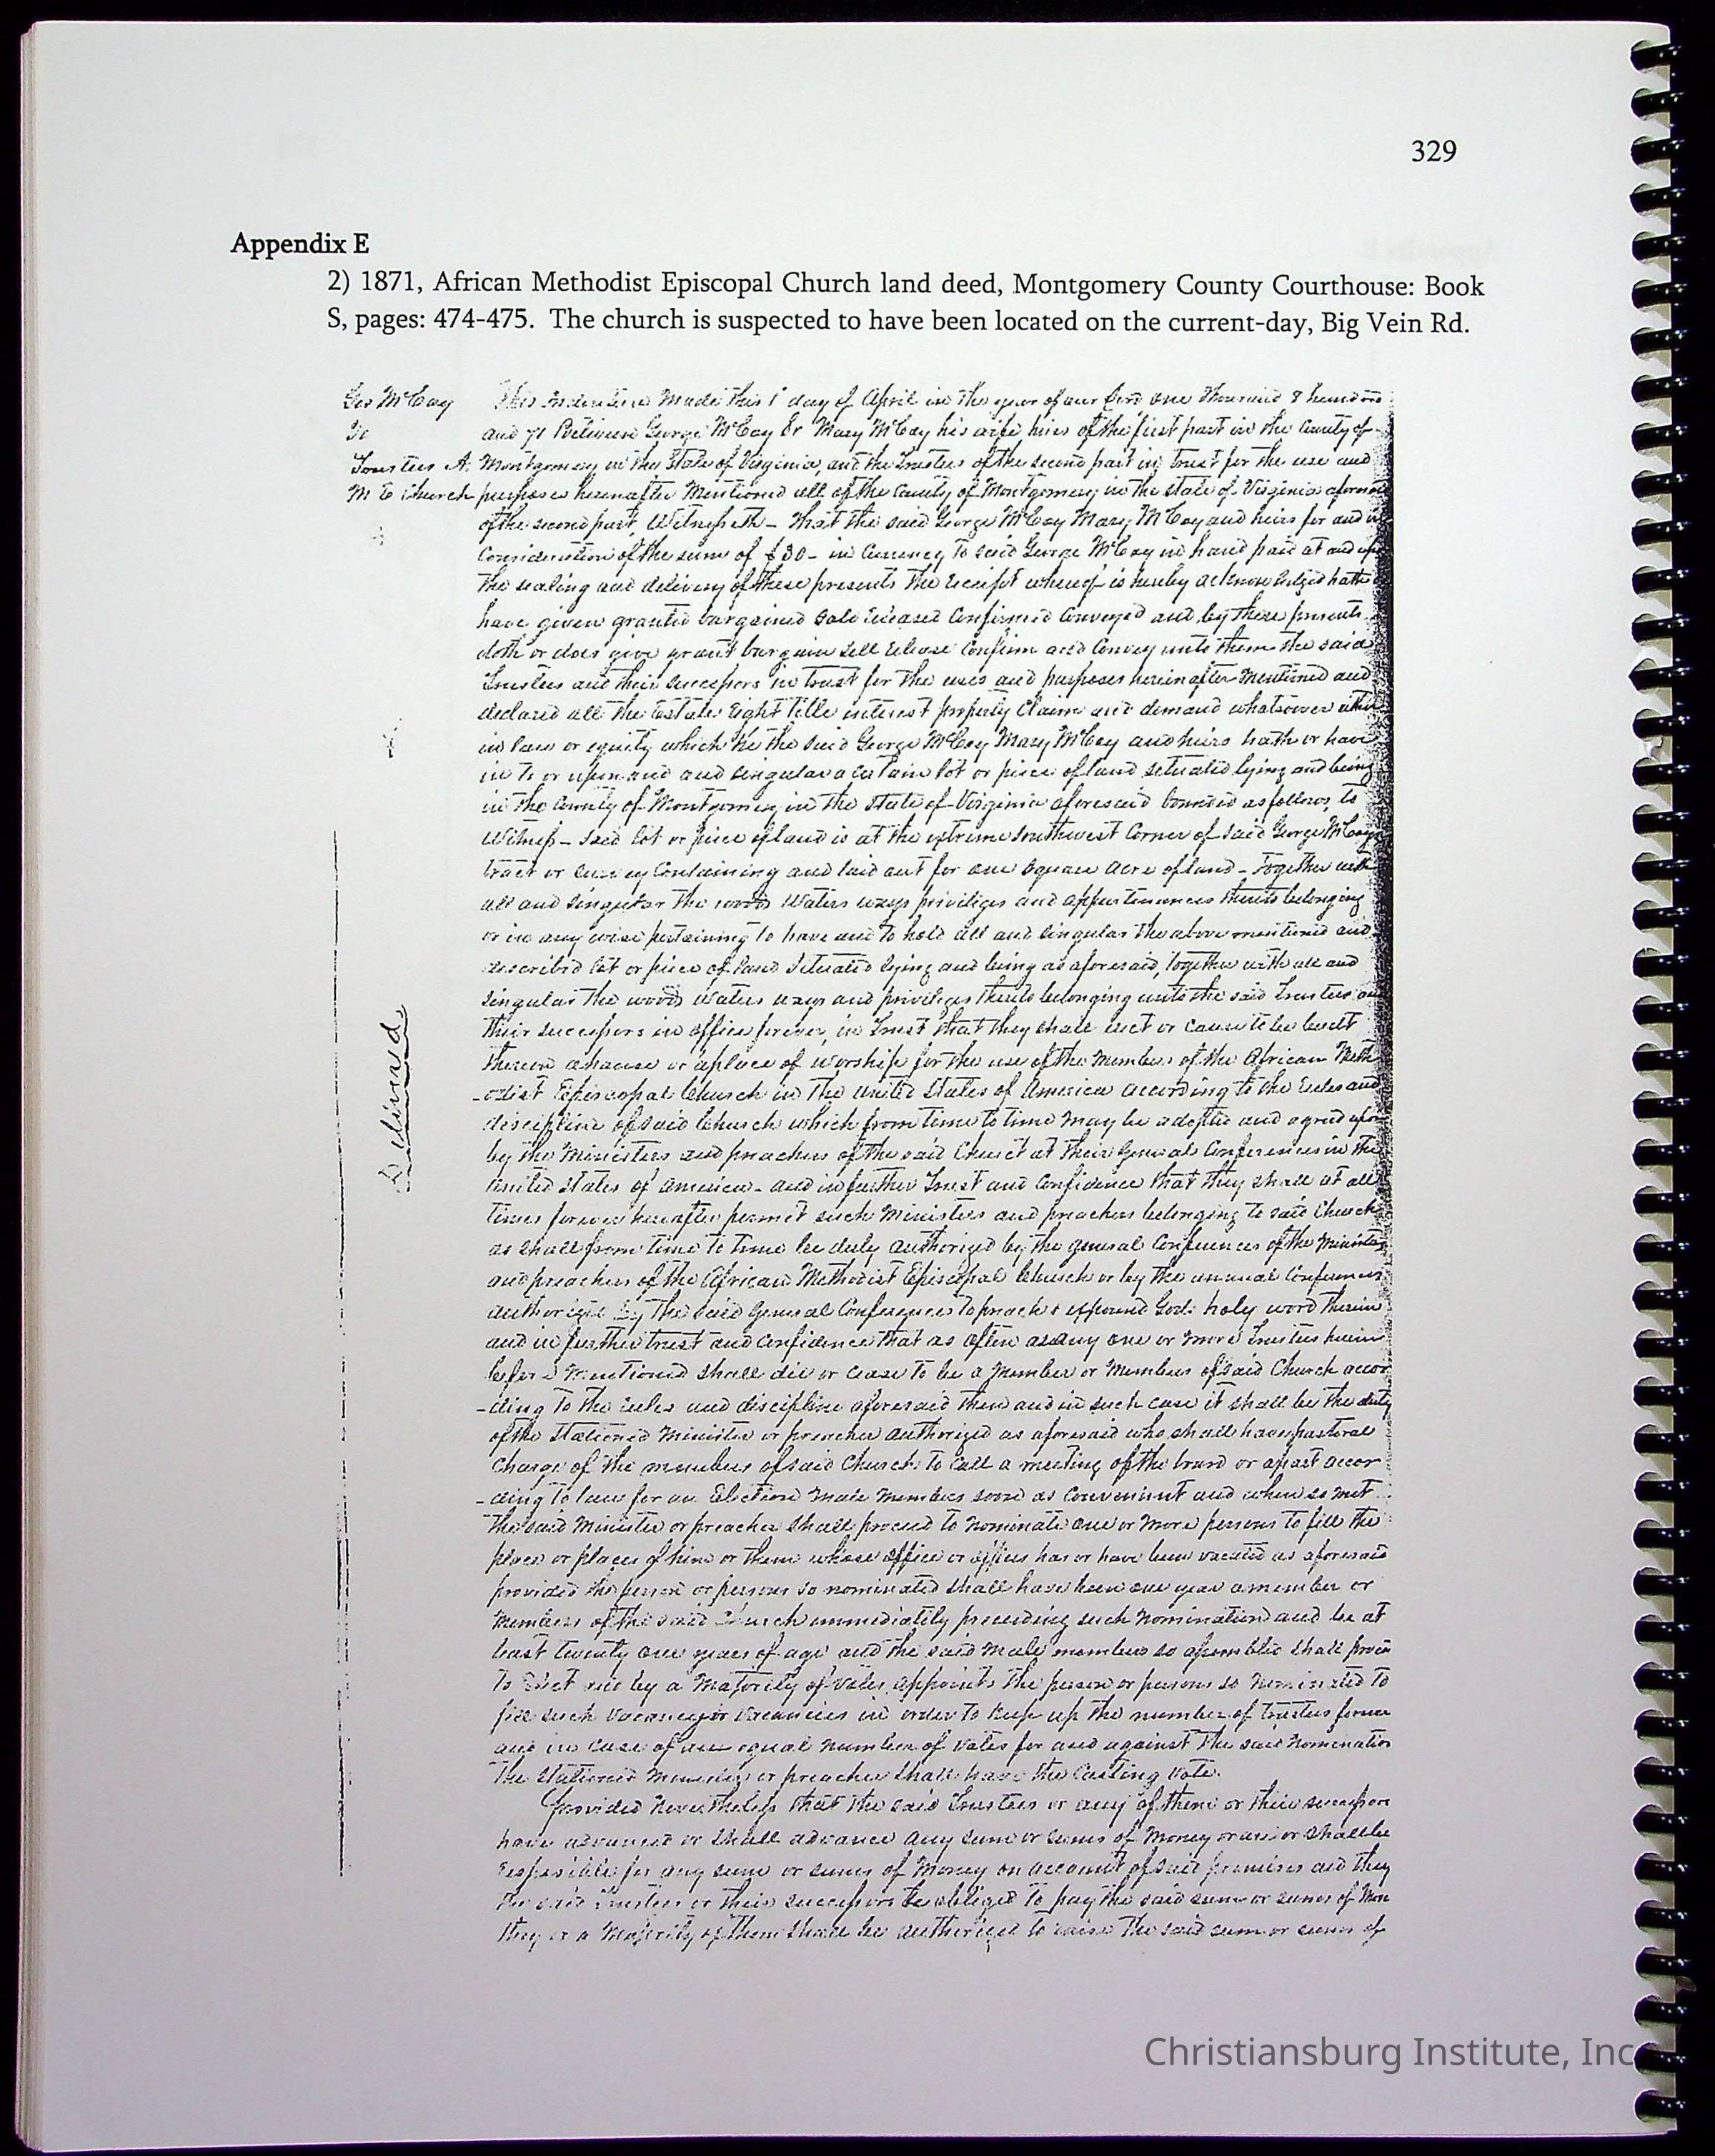 329
Appendix E
2) 1871, African Methodist Episcopal Church land deed, Montgomery County Courthouse: Book
S, pages: 474-475. The church is suspected to have been located on the current-day, Big Vein Rd.
Geo McCoy This Indenture Made this 1 day of April in the year of our Lord one thousand 8 hundred
To and 71 Between George McCoy & Mary McCoy his wife heirs of the first part in the County of
Trustees A. Montgomery in the State of Virginia, and the Trustees of the second part in trust for the use and
M E Church purposes hereinafter Mentioned all of the County of Montgomery in the State of Virginia
of the second part, Witnesseth - that the said George McCoy Mary McCoy and heirs for and in
Consideration of the sum of $30 - in Currency to said George McCoy in hand paid at and
the sealing and delivery of these presents the receipt whereof is hereby acknowledged hath
have given granted bargained sold released Confirmed Conveyed and by these presents
doth or does give grant bargain sell release Confirm and Convey unto them the said
Trustees and their successors in trust for the uses and purposes hereinafter Mentioned and
declared all the Estate right title interest property Claim and demand whatsoever
in law or equity which he the said George McCoy Mary McCoy and heirs hath or have
in to or upon and singular a certain lot or piece of land situated lying and being
in the County of Montgomery in the State of Virginia aforesaid bounded as follows, to
Witness - said lot or piece of land is at the extreme southwest Corner of said George McCoys
tract or survey Containing and laid out for one square acre of land - together with
all and singular the woods Waters ways priviliges and appurtenances thereto belonging
or in any wise pertaining to have and to hold all and singular the above mentioned and
described lot or piece of land situated lying and being as aforesaid, together with all and
singular the woods waters ways and privileges thereto belonging unto the said Trustees
their successors in office forever, in Trust that they shall erect or cause to be built
thereon a house or a place of worship for the use of the Members of the African Meth
-odist Episcopal Church in the United States of America according to the rules and
discipline of said Church which from time to time may be adopted and agreed upon
by the Ministers and preachers of the said Church at their General Conferences in the
United States of America - and in further Trust and Confidence that they shall at all
times forever hereafter permit such Ministers and preachers belonging to said Church
as shall from time to time be duly authorized by the general Conferences of the Ministers
and preachers of the African Methodist Episcopal Church or by the annual Conferences
authorized by the said General Conferences to preach & expound Gods holy word therein
and in further trust and Confidence that as often as any one or more Trustees herein
before Mentioned shall die or cease to be a Member or Members of said Church accor
-ding to the rules and discipline aforesaid then and in such case it shall be the duty
of the Stationed Minister or preacher authorized as aforesaid who shall have pastoral
Charge of the members of said Church to Call a meeting of the accor
-ding to law for an Election male members soon as Convenient and when so met
the said Minister or preacher shall proceed to nominate one or more persons to fill the
place or places of him or them whose office or offices has or have been vacated as aforesaid
provided the person or persons so nominated shall have been one year a member or
Members of the said Church immediately preceeding such nomination and be at
least twenty one years of age and the said male members so assembled shall
to and by a Majority of votes appoint the person or persons so nominated to
fill such vacancy or vacancies in order to keep up the number of trustees
and in case of an equal number of votes for and against the said Nomination
the Stationed Minister or preacher shall have the Casting vote.
Provided Nevertheless that the said Trustees or any of them or their successors
have advanced or shall advance any sum or sums of Money or are or shall be
responsible for any sum or sums of Money on account of said premises and they
the said Trustees or their successors be obliged to pay the said sum or sums of
they or a Majority of them shall be authorized to raise the said sum or sums of
Delivered
Christiansburg Institute, Inc